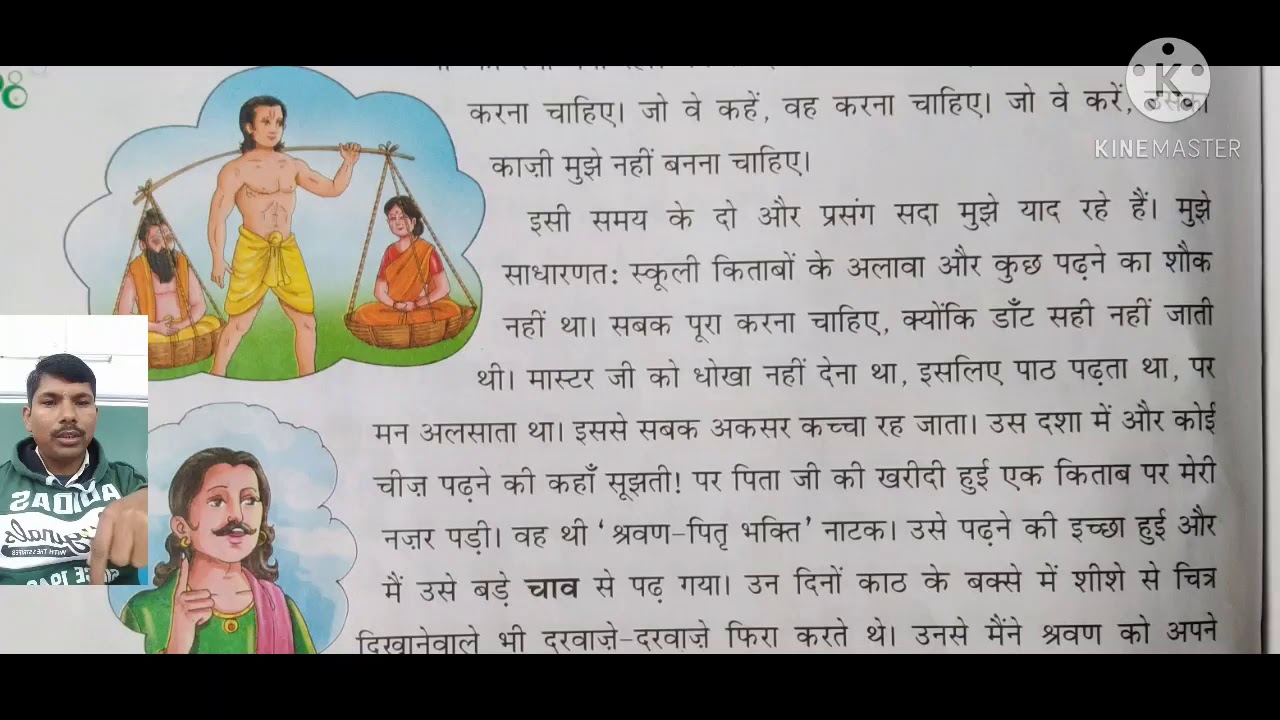 करना चाहिए। जो वे कहें, वह करना चाहिए। जो वे करें,
काज़ी मुझे नहीं बनना चाहिए।
इसी समय के दो और प्रसंग सदा मुझे याद रहे हैं। मुझे
साधारणतः स्कूली किताबों के अलावा और कुछ पढ़ने का शौक
नहीं था। सबक पूरा करना चाहिए, क्योंकि डाँट सही नहीं जाती
थी। मास्टर जी को धोखा नहीं देना था, इसलिए पाठ पढ़ता था, पर
मन अलसाता था। इससे सबक अकसर कच्चा रह जाता। उस दशा में और कोई
चीज़ पढ़ने की कहाँ सूझती! पर पिता जी की खरीदी हुई एक किताब पर मेरी
नज़र पड़ी। वह थी 'श्रवण-पितृ भक्ति' नाटक। उसे पढ़ने की इच्छा हुई और
मैं उसे बड़े चाव से पढ़ गया। उन दिनों काठ के बक्से में शीशे से चित्र
दिखानेवाले भी दरवाज़े-दरवाज़े फिरा करते थे। उनसे मैंने श्रवण को अपने
K
KINEMASTER
ADIDAS
Originals
WITH THE 3 STRIPES